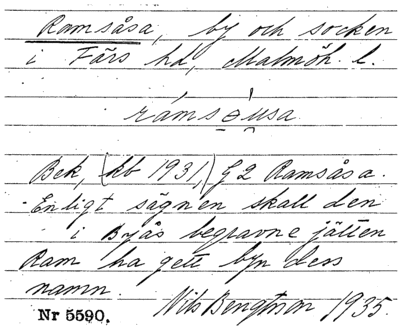 Ramsåsa, by och socken
i Färs hd, Malmöh. l.
ráms ə̯ úsa
Bek, (kb 1931,) G2 Ramsåsa.
Enligt sägnen skall den
i Byås begravne jätten
Ram ha gett byn dess
namn.
Nr 5590. Nils Bengtsson 1935.